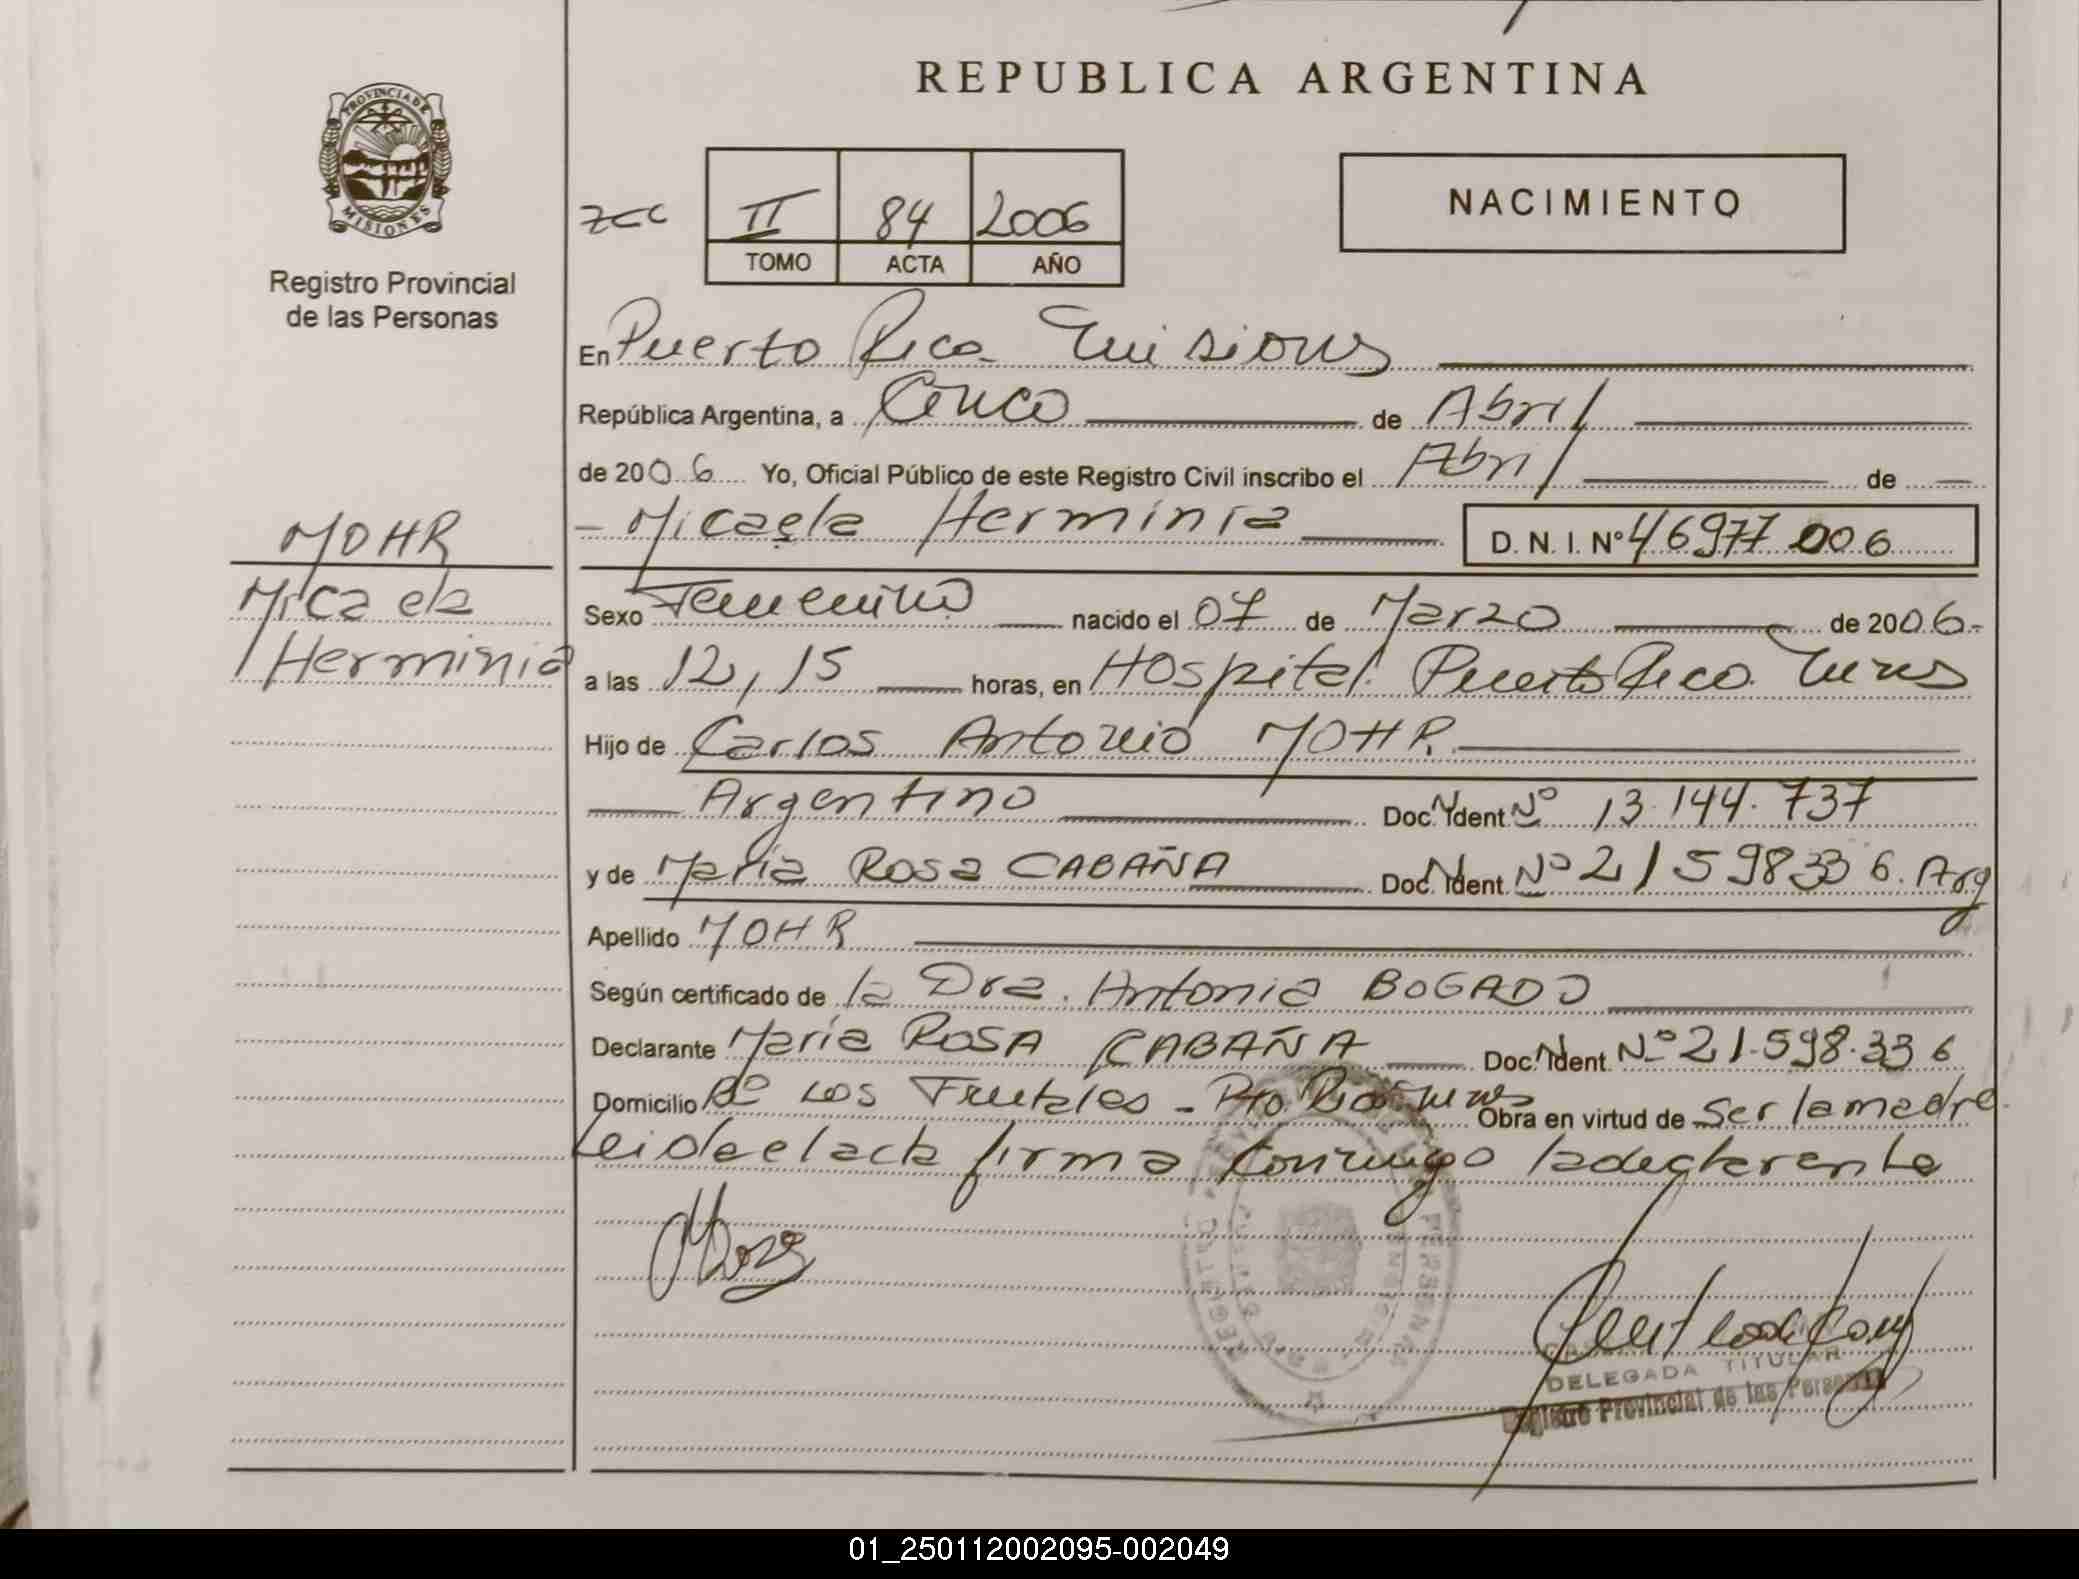 REPUBLICA ARGENTINA
PROVINCIA DE
MISIONES
Registro Provincial
de las Personas
II 84 2006
TOMO ACTA AÑO
NACIMIENTO
En Puerto Rico Misiones
República Argentina, a Cinco de Abril
de 2006 Yo, Oficial Público de este Registro Civil inscribo el Abril de
MOHR
Micaela
Herminia
- Micaela Herminia D. N. I. Nº 46977006
Sexo Femenino nacido el 07 de Marzo de 2006-
a las 12,15 horas, en Hospital Puerto Rico
Hijo de Carlos Antonio MOHR
Argentino Doc. Ident. Nº 13.144.737
y de María Rosa CABAÑA Doc. Ident. Nº 21598336. Arg
Apellido MOHR
Según certificado de la Dra. Antonia BOGADO
Declarante María ROSA CABAÑA Doc. Ident. Nº 21.598.336
Domicilio Bº Los Frutales - Pto. Rico Obra en virtud de Ser la madre.
Leida el acta firma conmigo la declarante
DELEGADA TITULAR
Registro Provincial de las Personas
01_250112002095-002049